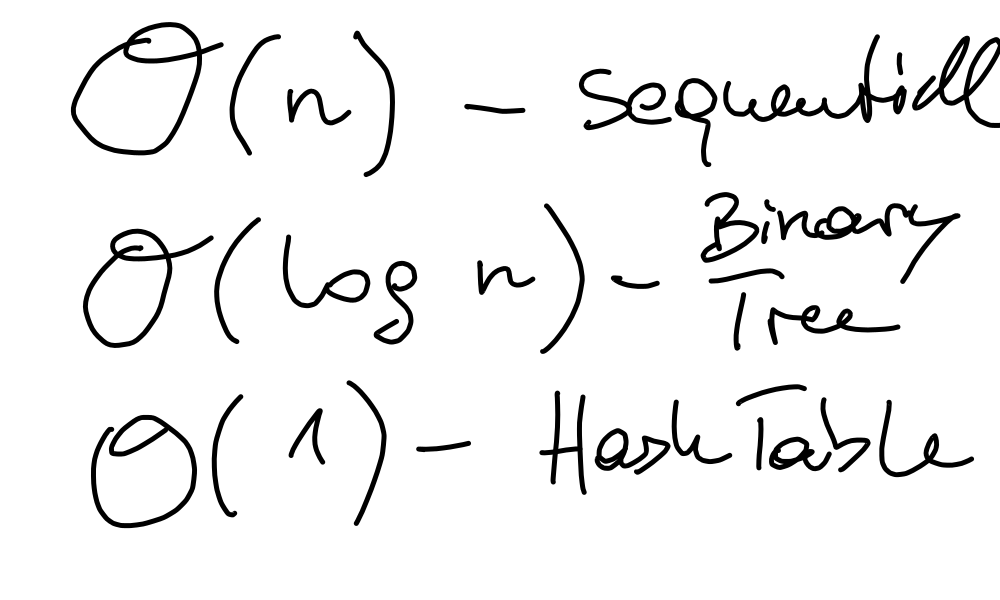 O(n) - sequentiall
O(log n) - Binary
Tree
O(1) - HashTable